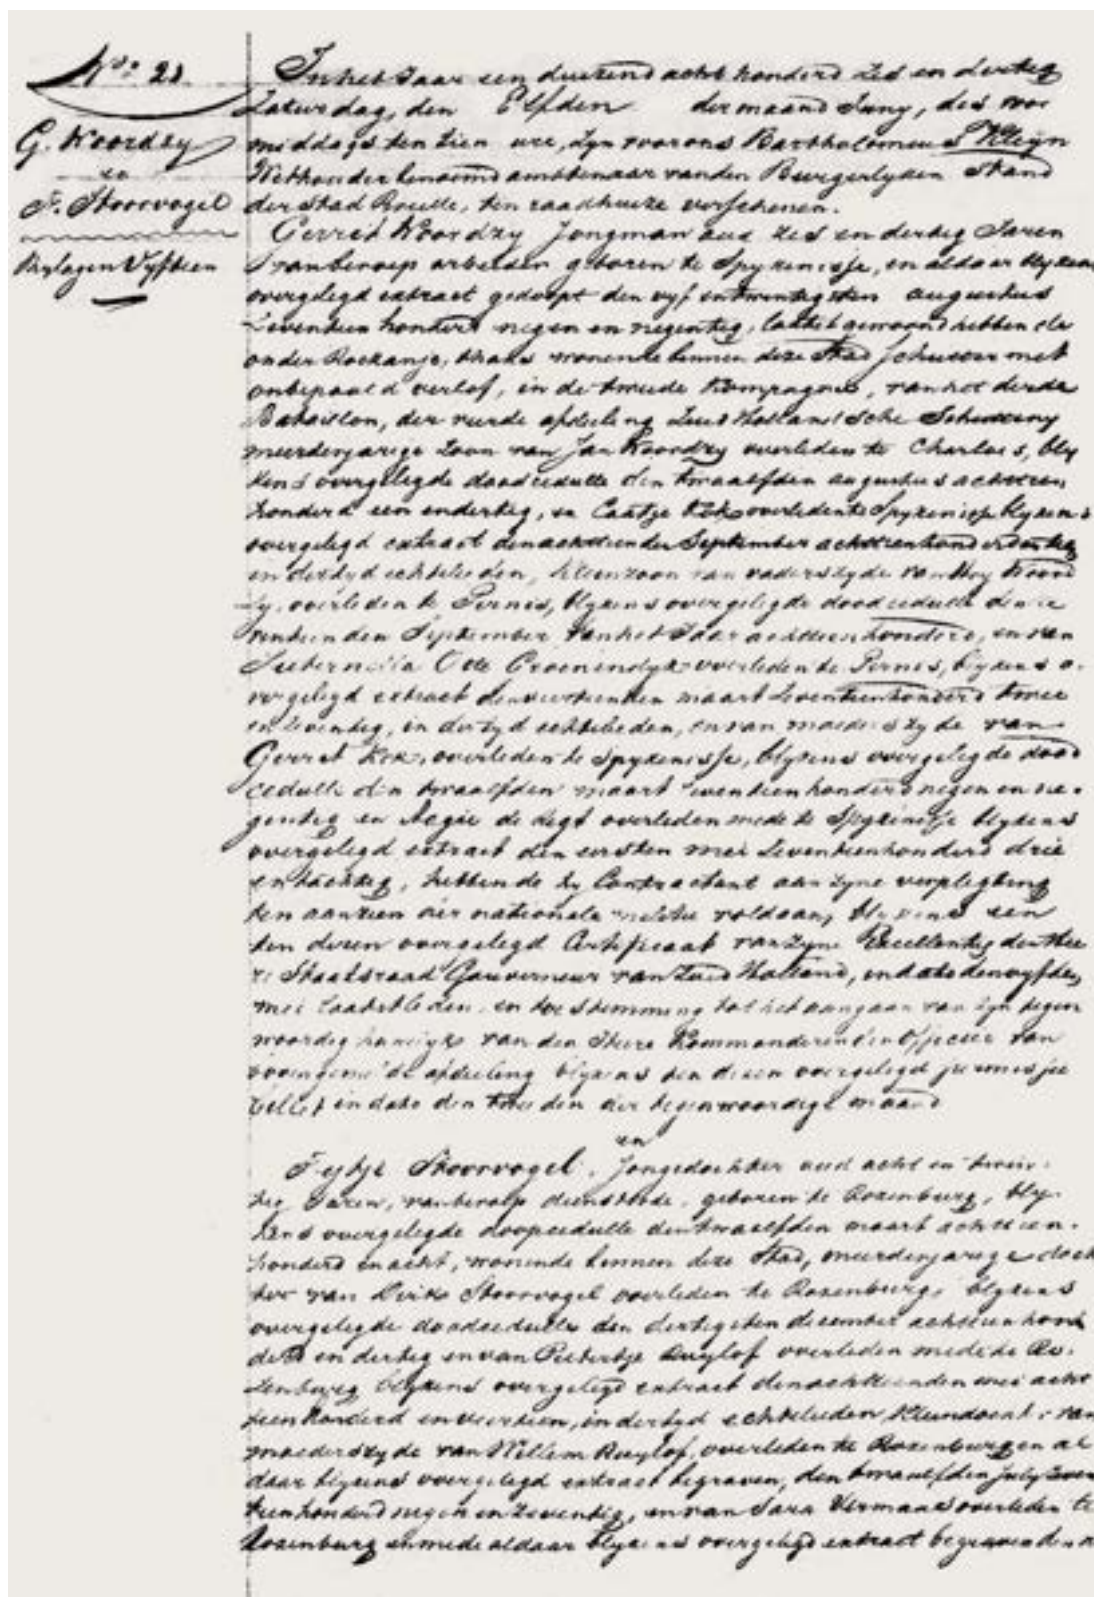 No. 21
G. Koordzy
en
F. Stoorvogel
Bylagen Vyftien
In het Jaar een duizend acht honderd zes en dertig
Zaturdag, den Elfden der maand Juny, des voor
middags ten tien ure, zyn voor ons Bartholomeus Kleyn
Wethouder benoemd ambtenaar van den Burgerlyken Stand
der Stad Brielle, ten raadhuize verschenen.
Gerrit Koordzy Jongman oud zes en dertig Jaren
van beroep arbeider geboren te Spykenisse, en aldaar blykens
overgelegd extract gedoopt den vyf en twintigsten augustus
Zeventien honderd negen en negentig, laatst gewoond hebbende
onder Rockanje, thans wonende binnen deze Stad Schutter met
onbepaald verlof, in de tweede Kompagnie, van het derde
Bataillon, der vierde afdeeling Zuid Hollandsche Schuttery
meerderjarige Zoon van Jan Koordzy overleden te Charlois, bly
kens overgelegde doodcedulle den twaalfden augustus achttien
honderd een en dertig, en Caatje Kok overleden te Spykenisse blykens
overgelegd extract den achttienden September achttien honderd
in der tyd echtelieden, kleinzoon van vaderszyde van Koord
zy, overleden te Pernis, blykens overgelegde doodcedulle den ze
ventienden September van het Jaar achttienhonderd, en van
Groenendyk overleden te Pernis, blykens o-
vergelegd extract den veertienden maart Zeventienhonderd twee
en zeventig, in der tyd echtelieden, en van moederszyde van
Gerrit Kok, overleden te Spykenisse, blykens overgelegde dood
cedulle den twaalfden maart zeventienhonderd negen en ne-
gentig en overleden mede te Spykenisse blykens
overgelegd extract den eersten mei Zeventienhonderd drie
en tachtig, hebbende hy Contractant aan zyne verpligting
ten aanzien der nationale militie voldaan, blykens een
ten dezen overgelegd Certificaat van zyne Excellentie den Hee
re Staatsraad Gouverneur van Zuid Holland, in dato den vyfden
mei laatstleden, en toestemming tot het aangaan van zyn tegen
woordig huwelyk van den Heere Kommanderend en Officier van
voorngemelde afdeeling blykens ten dezen overgelegd permissie
billet in dato den tweeden der tegenwoordige maand
en
Fytje Stoorvogel, Jongedochter oud acht en twin-
tig Jaren, van beroep dienstbode, geboren te Rozenburg, bly-
kens overgelegde doopcedulle den twaalfden maart achttien-
honderd en acht, wonende binnen deze Stad, meerderjarige doch
ter van Dirk Stoorvogel overleden te Rozenburg, blykens
overgelegde doodcedulle den dertigsten december achttien hon
derd en dertig en van Pietertje Ruylof overleden mede te Ro-
zenburg blykens overgelegd extract den achttienden mei acht
tien honderd en veertien, in der tyd echtelieden, kleindocht. van
moederszyde van Willem Ruylof, overleden te Rozenburg en al
daar blykens overgelegd extract begraven, den twaalfden july zeven
tien honderd negen en zeventig, en van Sara Vermaas overleden te
Rozenburg en mede aldaar blykens overgelegd extract begraven den